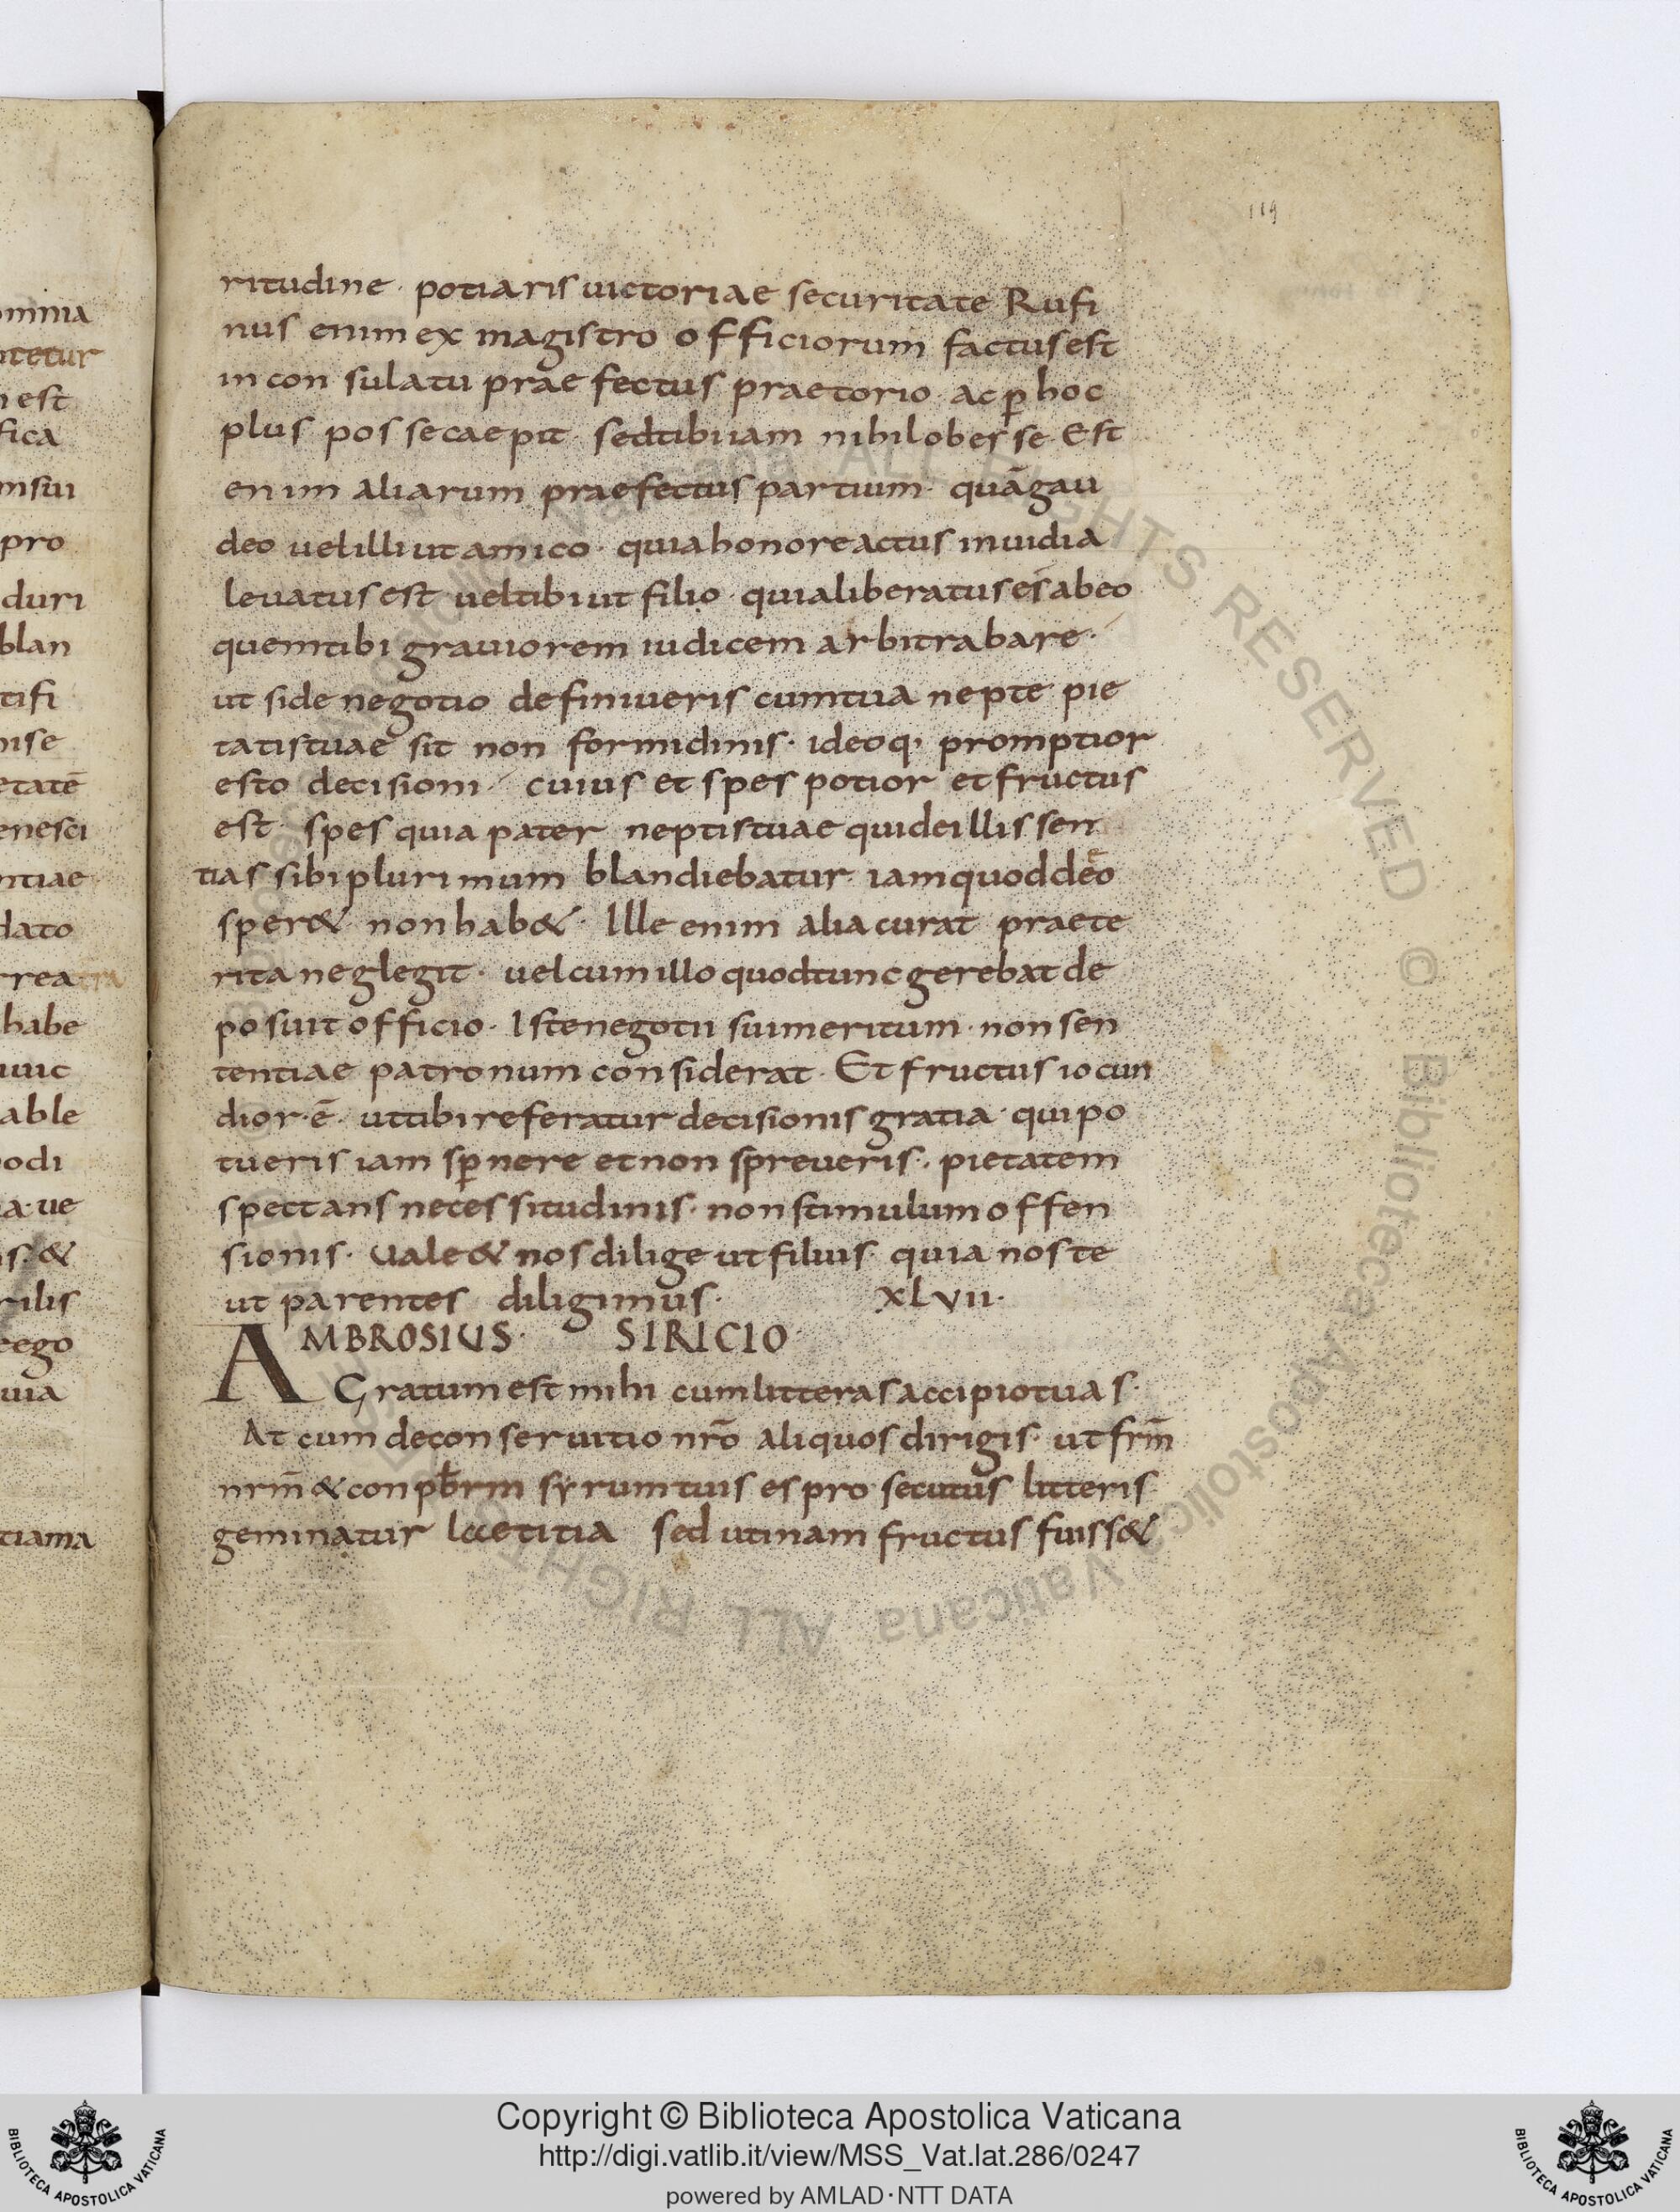 119
ritudine · potiaris uictoriae securitate Rufi
nus enim ex magistro officiorum factus est
in con sulatu praefectus praetorio ac p̱ hoc
plus posse caepit · sed tibi iam nihil obesse · Est
enim aliarum praefectus partium · quā gau
deo uel illi ut amico · quia honore actus inuidia
leuatus est · uel tibi ut filio · quia liberatus es ab eo
quem tibi grauiorem iudicem arbitrabare ·
ut si de negotio definiueris cum tua nepte pie
tatis tuae sit non formidinis · ideoq; promptior
esto decisioni cuius et spes potior et fructus
est · spes quia pater neptis tuae qui de illis sen
tias sibi plurimum blandiebatur · iam quod de eo
sper& non hab& · Ille enim alia curat praete
rita neglegit · uel cum illo quod tunc gerebat de
posuit officio · Iste negotii sui meritum · non sen
tentiae patronum considerat · Et fructus iocun
dior · ē · ut tibi referatur decisionis gratia · qui po
tueris iam sp̱nere et non spreueris · pietatem
spectans necessitudinis · non stimulum offen
sionis · Uale & nos dilige ut filius · quia nos te
ut parentes diligimus · xlvii ·
AMBROSIUS · SIRICIO
Gratum est mihi cum litteras accipio tuas ·
At cum de conseruitio nr̄o aliquos dirigis · ut frm̄
nrm̄ & conpb̄rm syrum tuis es pro secutus litteris
geminatur laetitia sed utinam fructus fuiss&
omnia
ntetur
est
fica
pro
duri
blan
tifi
etatē
enesci
ntiae
dato
rrea
habe
able
odi
a · ue
s · &
rilis
ego
uia
tiama
Biblioteca Apostolica Vaticana ALL RIGHTS RESERVED ©
Copyright © Biblioteca Apostolica Vaticana
http://digi.vatlib.it/view/MSS_Vat.lat.286/0247
powered by AMLAD · NTT DATA
BIBLIOTECA APOSTOLICA VATICANA
BIBLIOTECA APOSTOLICA VATICANA